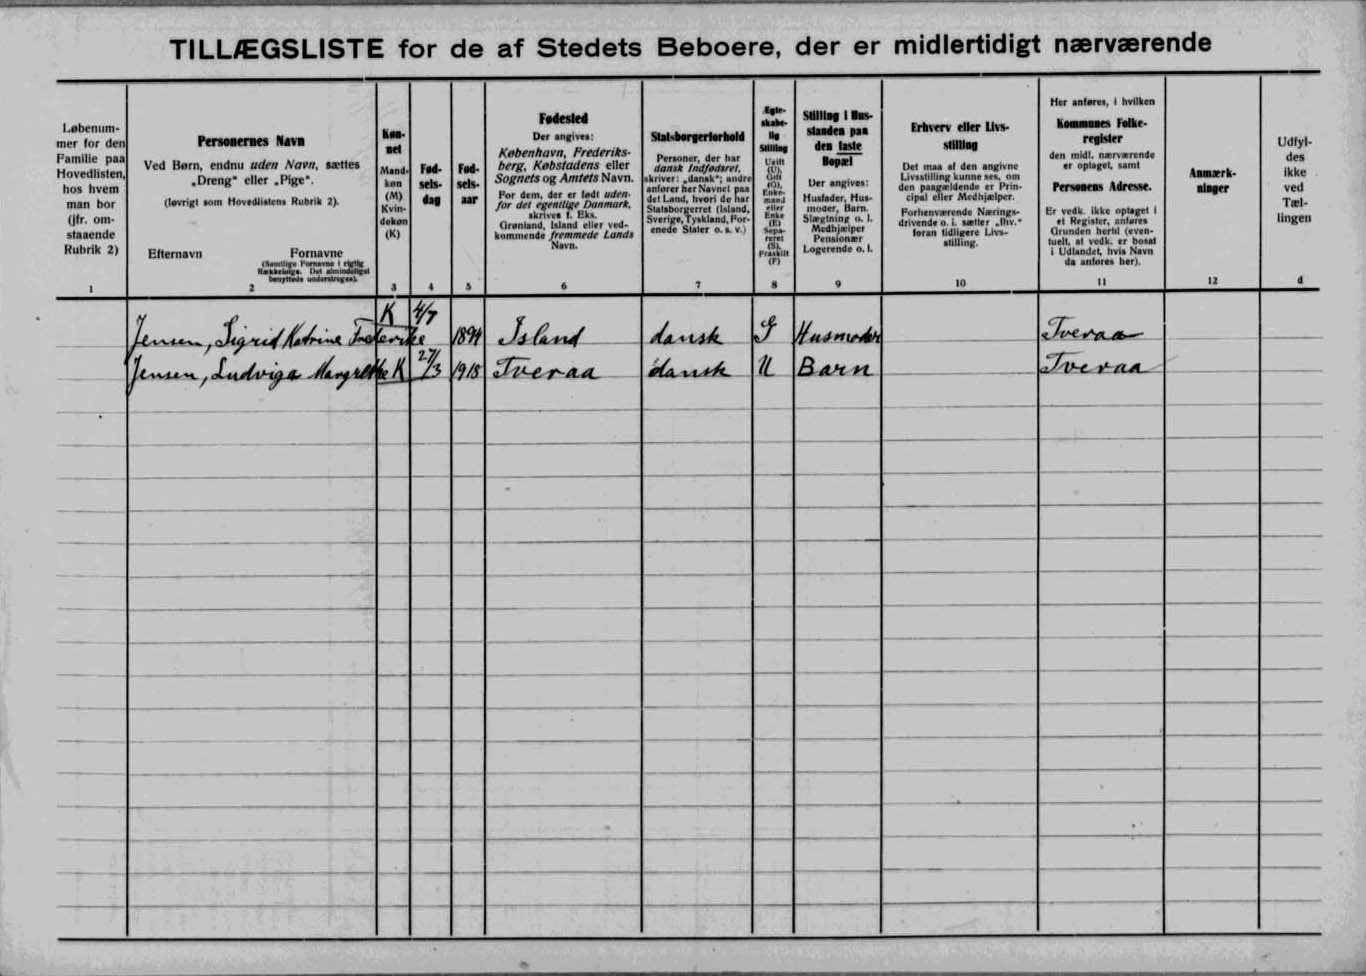 TILLÆGSLISTE for de af Stedets Beboere, der er midlertidigt nærværende
Løbenum-
mer for den
Familie paa
Hovedlisten,
hos hvem
man bor
(jfr. om-
staaende
Rubrik 2)
1
Personernes Navn
Ved Børn, endnu uden Navn, sættes
„Dreng" eller „Pige".
(løvrigt som Hovedlistens Rubrik 2).
Efternavn Fornavne
(Samtlige Fornavne i rigtig
Rækkefølge. Det almindeligst
benyttede understreges).
2
Køn-
net
Mand-
køn
(M)
Kvin-
dekøn
(K)
3
Fød-
sels-
dag
4
Fød-
sels-
aar
5
Fødested
Der angives:
København, Frederiks-
berg, Købstadens eller
Sognets og Amtets Navn.
For dem, der er født uden-
for det egentlige Danmark,
skrives f. Eks.
Grønland, Island eller ved-
kommende fremmede Lands
Navn.
6
Statsborgerforhold
Personer, der har
dansk Indfødsret,
skriver: „dansk"; andre
anfører her Navnet paa
det Land, hvori de har
Statsborgerret (Island,
Sverige, Tyskland, For-
enede Stater o. s. v.)
7
Ægte-
skabe-
lig
Stilling
Ugift
(U),
Gift
(G),
Enke-
mand
eller
Enke
(E)
Sepa-
reret
(S),
Fraskilt
(F)
8
Stilling i Hus-
standen paa
den faste
Bopæl
Der angives:
Husfader, Hus-
moder, Barn.
Slægtning o. l.
Medhjælper
Pensionær
Logerende o. l.
9
Erhverv eller Livs-
stilling
Det maa af den angivne
Livsstilling kunne ses, om
den paagældende er Prin-
cipal eller Medhjælper.
Forhenværende Nærings-
drivende o. l. sætter „fhv."
foran tidligere Livs-
stilling.
10
Her anføres, i hvilken
Kommunes Folke-
register
den midl. nærværende
er optaget, samt
Personens Adresse.
Er vedk. ikke optaget i
et Register, anføres
Grunden hertil (even-
tuelt, at vedk. er bosat
i Udlandet, hvis Navn
da anføres her).
11
Anmærk-
ninger
12
Udfyl-
des
ikke
ved
Tæl-
lingen
d
Jensen, Sigrid Katrine Frederikke K 4/7 1894 Island dansk G Husmoder Tveraa
Jensen, Ludviga Margrethe K 27/3 1918 Tveraa dansk U Barn Tveraa